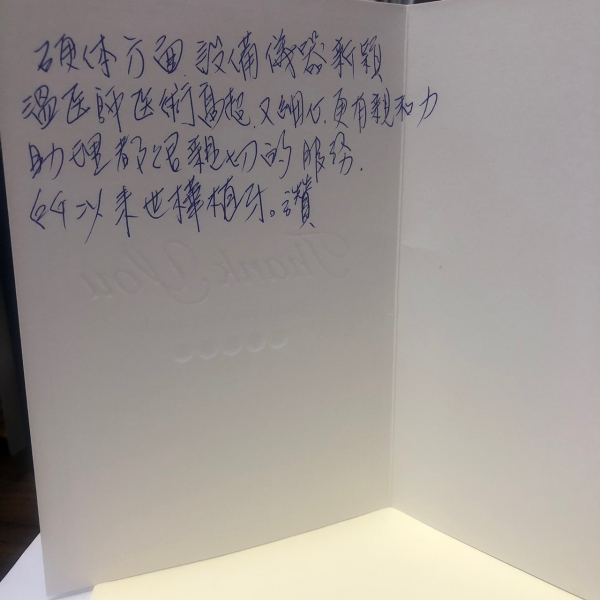 硬体方面,設備儀器新穎
溫医師医術高超,又細心,更有親和力
助理都很親切的服務.
所以来世樺植牙。讚
Thank You